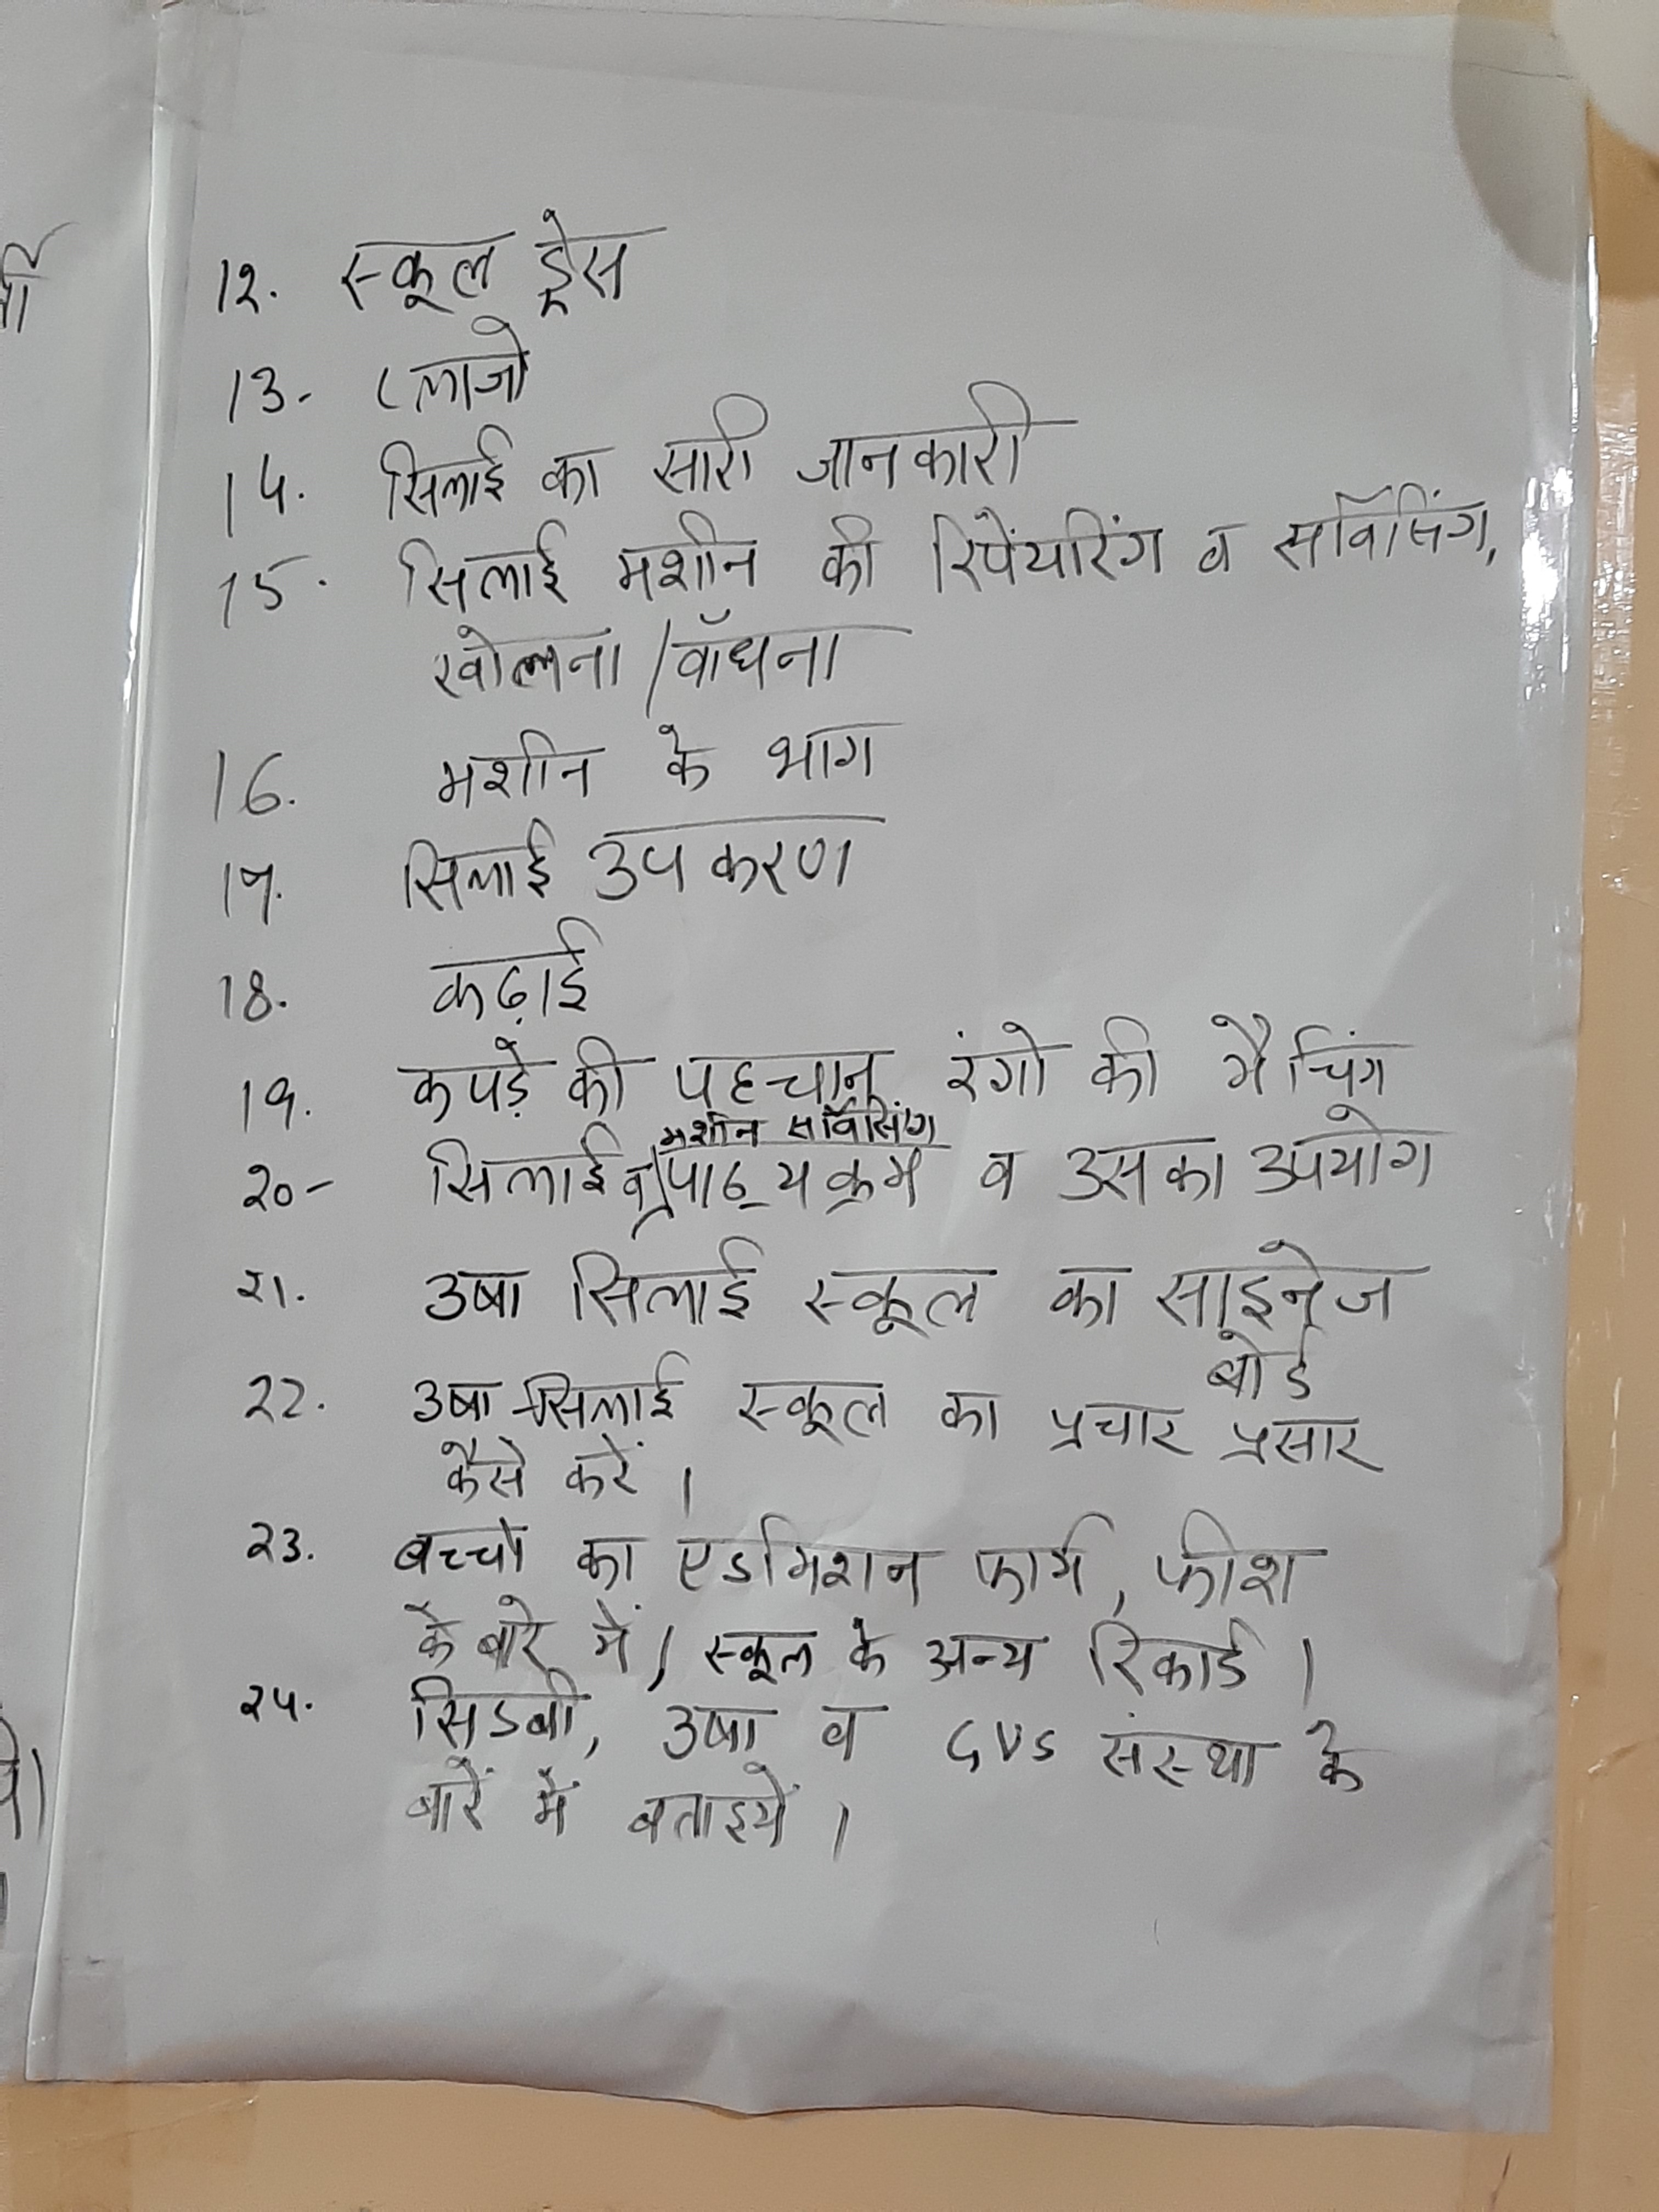 12. स्कूल ड्रेस
13- प्लाजो
14. सिलाई का सारी जानकारी
15. सिलाई मशीन की रिपेंयरिंग व सर्विसिंग,
खोलना / बाँधना
16. मशीन के भाग
17. सिलाई उपकरण
18. कढ़ाई
19. कपड़े की पहचान, रंगो की मैचिंग
मशीन सर्विसिंग
20- सिलाई व पाठ्यक्रम व उसका उपयोग
21. उषा सिलाई स्कूल का साइनेज
बोर्ड
22. उषा सिलाई स्कूल का प्रचार प्रसार
कैसे करें ।
23. बच्चो का एडमिशन फार्म, फीश
के बारे में, स्कूल के अन्य रिकार्ड ।
24. सिडबी, उषा व GVS संस्था के
बारें में बताइयें ।